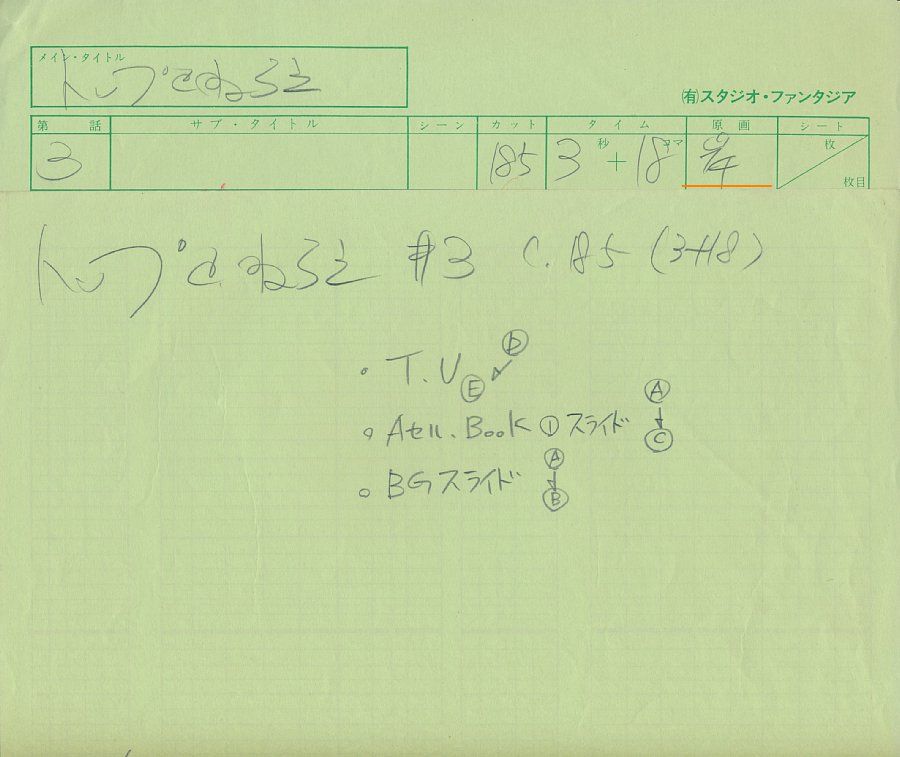 メイン・タイトル
トップをねらえ
(有)スタジオ・ファンタジア
第 話 サブ・タイトル シーン カット タイム 原画 シート
3 185 3秒+18コマ 枚
枚目
トップをねらえ #3 C.185 (3+18)
• T.U Ⓓ
Ⓔ
Ⓐ
○ Aセル.Book ① スライド Ⓒ
Ⓐ
○ BGスライド Ⓑ